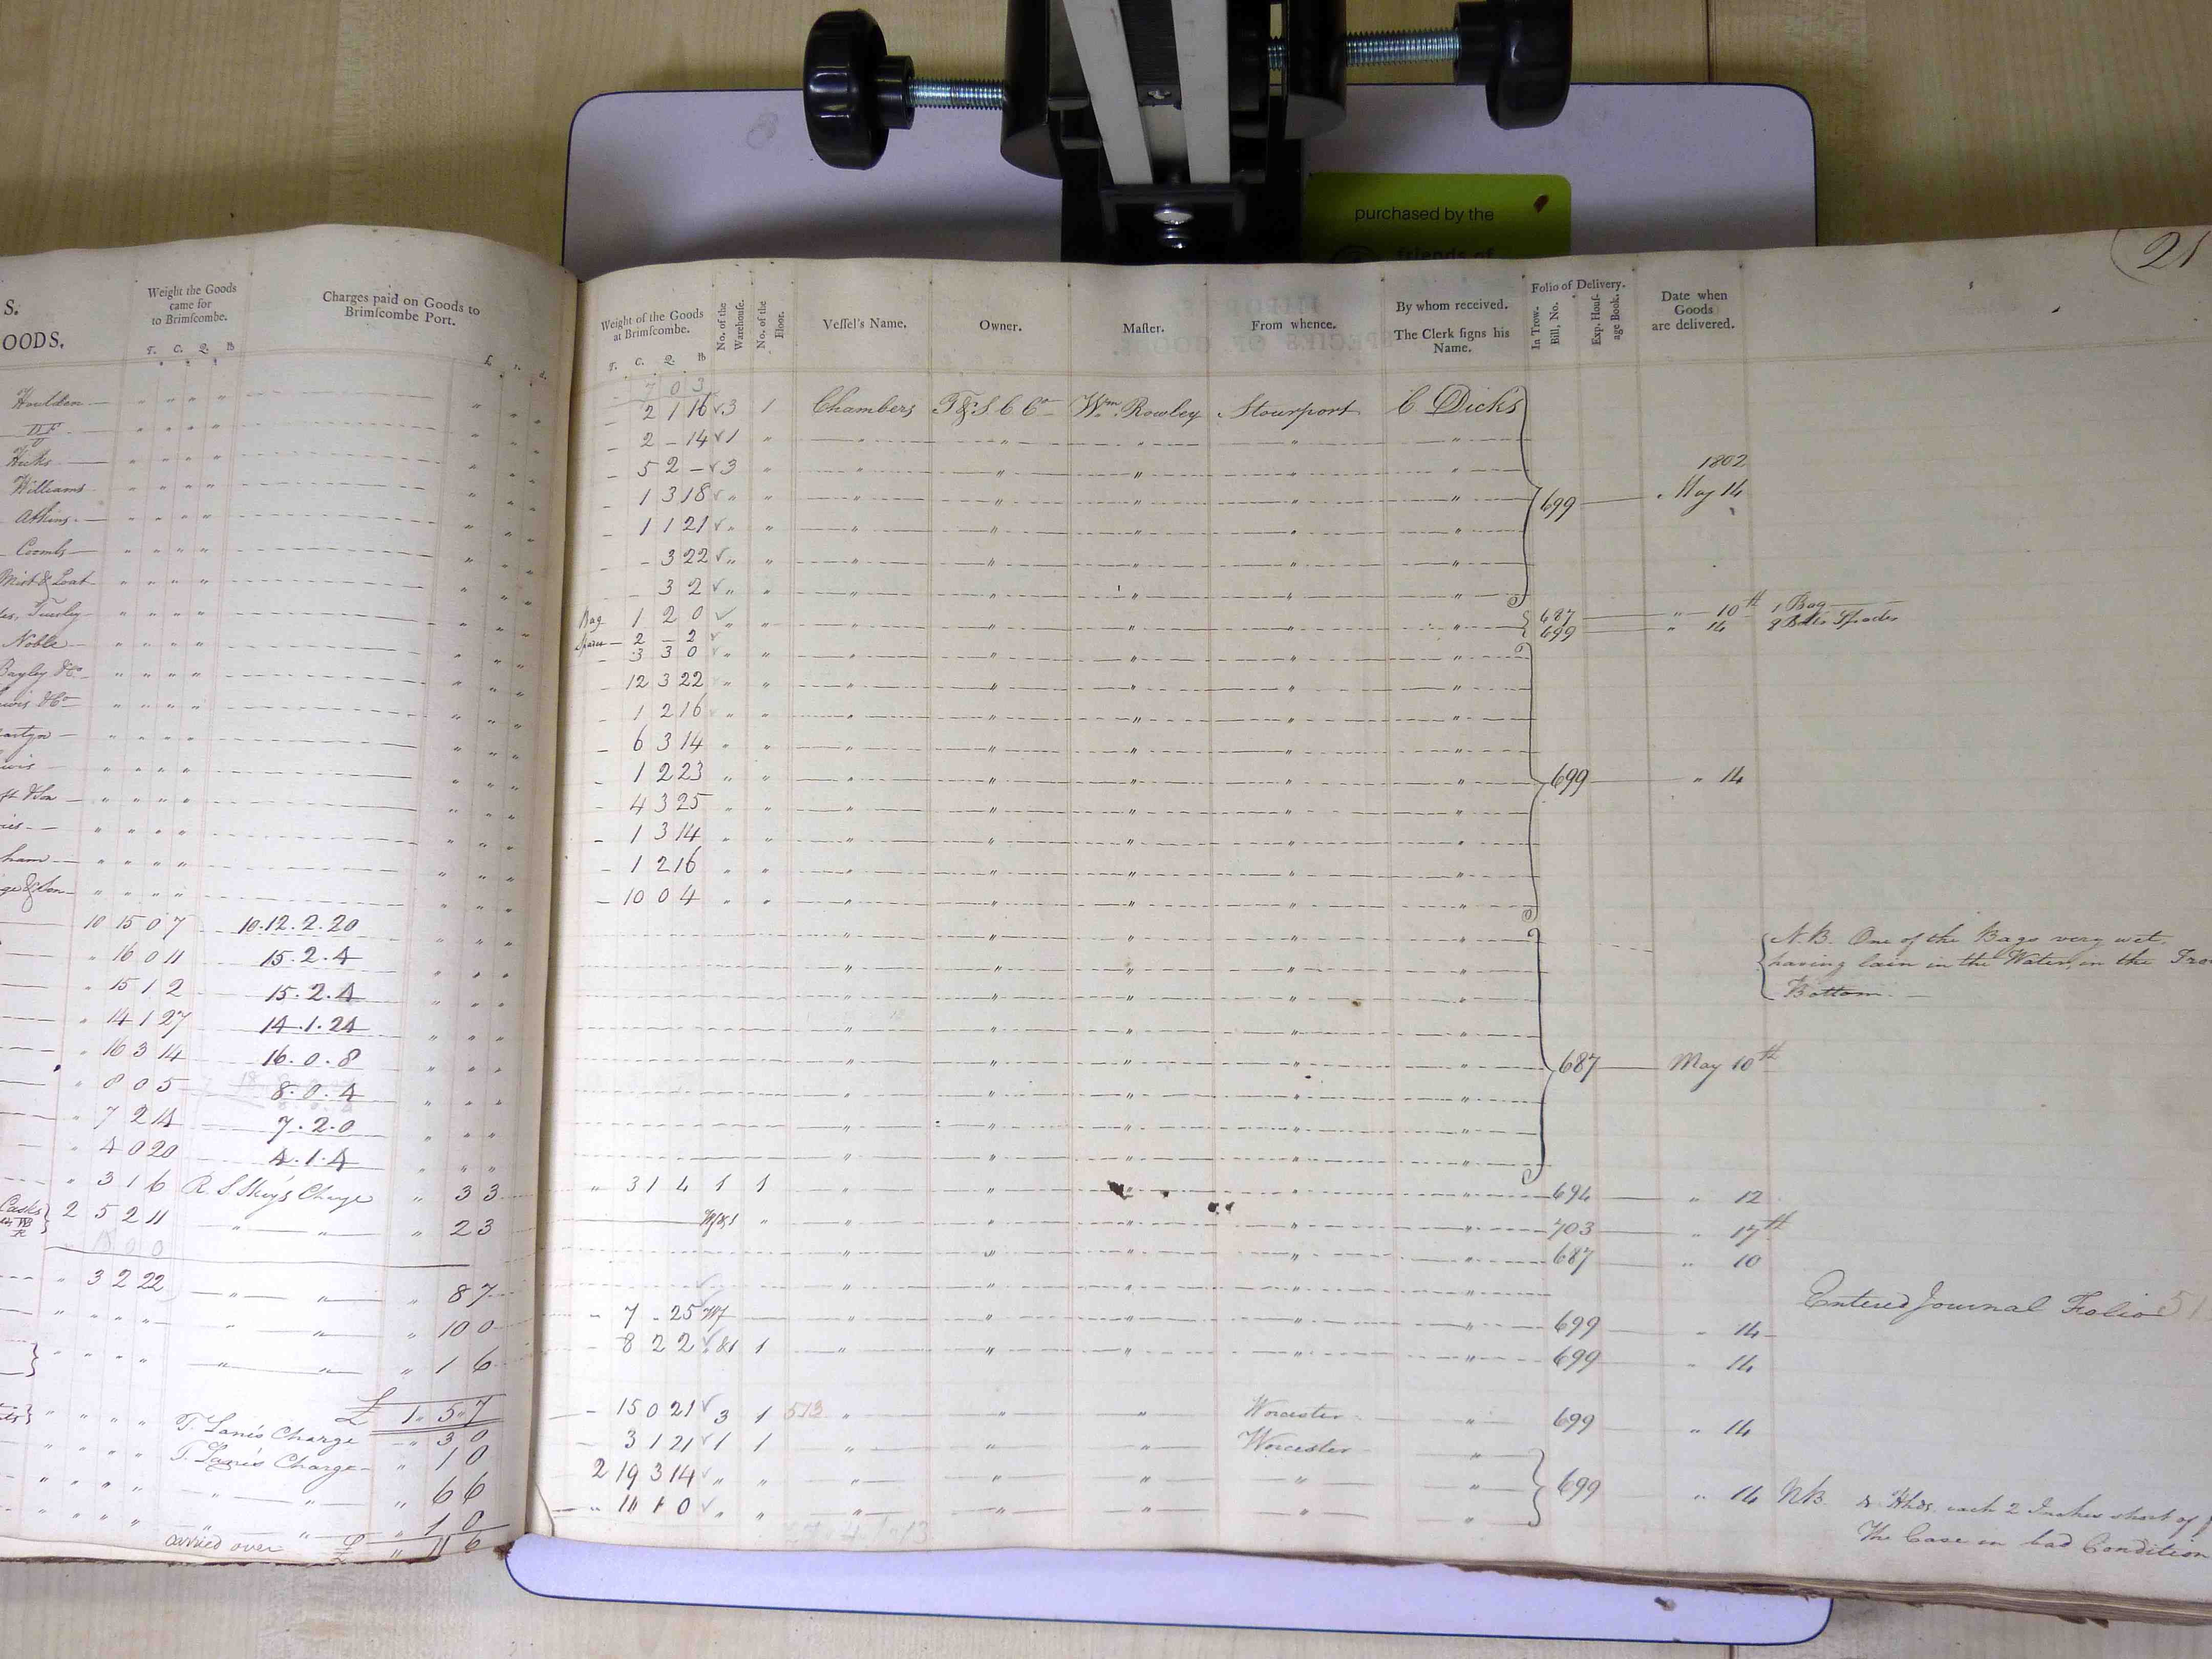 purchased by the
friends of
21
S.
OODS.
Weight the Goods
came for
to Brimſcombe.
T. C. Q. lb
Charges paid on Goods to
Brimſcombe Port.
£. s. d.
Houlden
Hicks
Williams
Atkins
Coombs
Mist & Loat
Tinsley
Noble
Bayley & Co
10 15 0 7 10.12.2.20
" 16 0 11 15.2.4
" 15 1 2 15.2.4
" 14 1 27 14.1.24
" 16 3 14 16.0.8
" 8 0 5 8.0.4
" 7 2 14 7.2.0
" 4 0 20 4.1.4
" 3 1 6 R. S. Skey's Charge " 3 3
Casks 2 5 2 11 " " " 2 3
" 3 2 22 " " " 8 7
" " " " " " " 10 0
" " " " " " 1 6
£ 1 " 5 " 7
" " " " T. Lane's Charge " 3 0
" " " " T. Lane's Charge " 1 0
" " " " " " " 6 6
" " " " " " " 1 0
carried over £ " 11 6
Weight of the Goods
at Brimſcombe.
T. C. Q. lb
No. of the
Warehouſe.
No. of the
Floor.
Veſſel's Name.
Owner.
Maſter.
From whence.
By whom received.
The Clerk ſigns his
Name.
Folio of Delivery.
In Trow.
Bill, No.
Exp. Houſ-
age Book.
Date when
Goods
are delivered.
7 0 3
2 1 16 3 1 Chambers T & S C Co Wm Rowley Stourport C Dicks
2 - 14 1 " " " " " "
5 2 - 3 " " " " " " 1802
1 3 18 " " " " " " " 699 May 14
1 1 21 " " " " " " "
- 3 22 " " " " " " "
3 2 " " " " " " "
Bag 1 2 0 687 " 10th 1 Bag
Spades 2 - 2 " " " " " " " 699 " 14 Spades
3 3 0 " " " " " " "
12 3 22 " " " " " " "
1 2 16 " " " " " " "
6 3 14 " " " " " " "
1 2 23 " " " " " " " 699 " 14
4 3 25 " " " " " " "
1 3 14 " " " " " " "
1 2 16 " " " " " " "
10 0 4 " " " " " " "
N.B. One of the Bags very wet,
having lain in the Water, in the
Bottom.
687 May 10th
" 3 1 4 1 1 " " " " " 694 " 12
" " " " " " 703 " 17th
" " " " " 687 " 10
" " " " "
Entered Journal Folio 51
- 7 - 25 " " " " " 699 " 14
8 2 2 1 " " " " " 699 " 14
- 15 0 21 3 1 513 " " " Worcester " 699 " 14
- 3 1 21 1 1 " " " Worcester "
2 19 3 14 " " " " " " " 699 " 14 NB. Hhds. each 2 Inches short of
" 11 1 0 " " " " " " " The Case in bad Condition